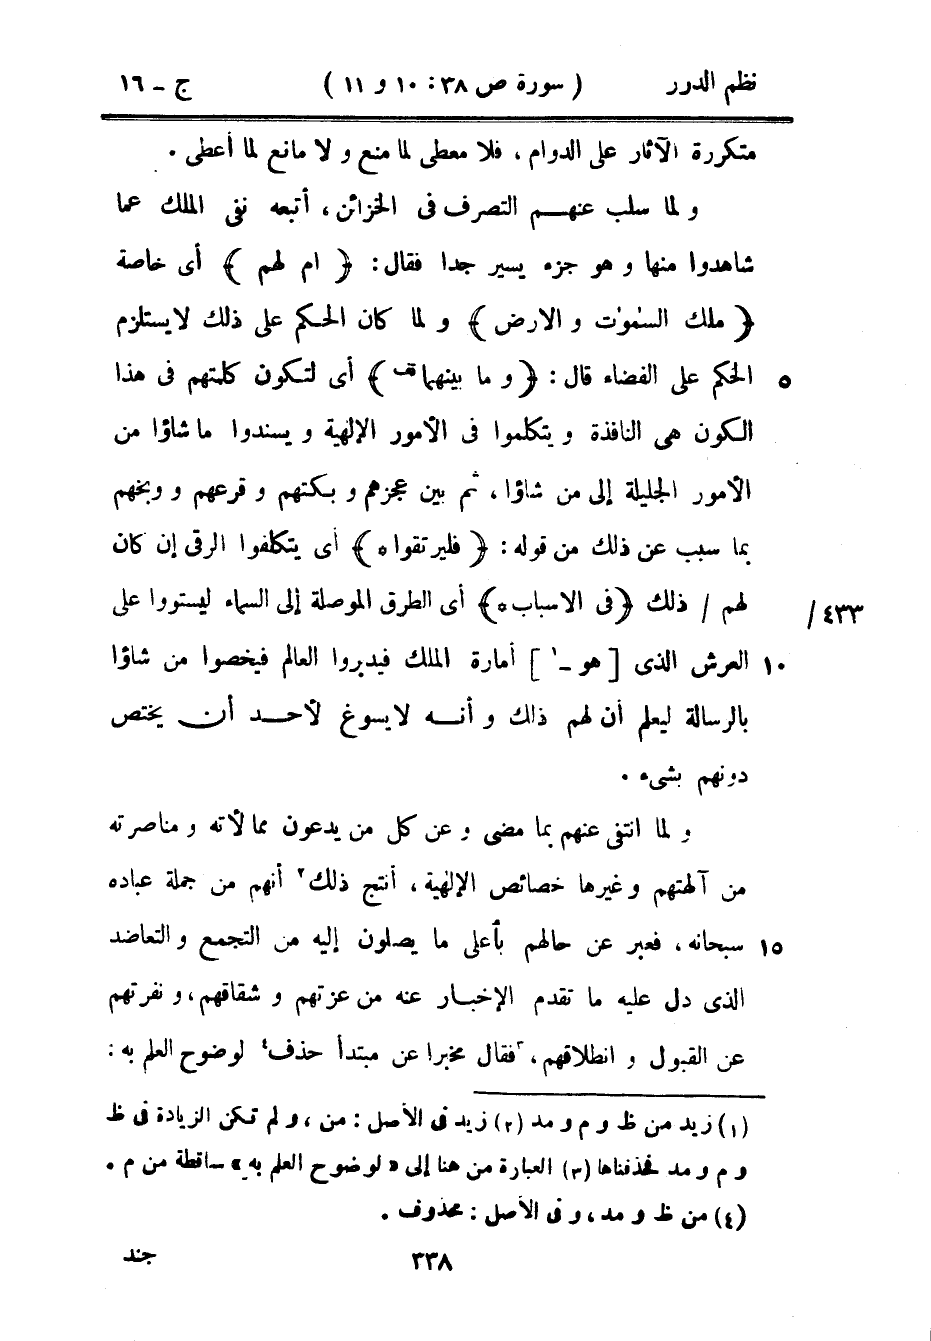 نظم الدرر ( سورة ص ٣٨ : ١٠ و ١١ ) ج - ١٦
متكررة الآثار على الدوام ، فلا معطى لما منع و لا مانع لما أعطى .
و لما سلب عنهم التصرف فى الخزائن ، أتبعه نفى الملك عما
شاهدوا منها و هو جزء يسير جدا فقال : ﴿ ام لهم ﴾ أى خاصة
﴿ ملك السمٰوٰت و الارض ﴾ و لما كان الحكم على ذلك لا يستلزم
٥ الحكم على الفضاء قال : ﴿ و ما بينهما قف ﴾ أى لتكون كلمتهم فى هذا
الكون هى النافذة و يتكلموا فى الأمور الإلهية و يسندوا ما شاؤا من
الأمور الجليلة إلى من شاؤا ، ثم بين عجزهم و بكتهم و قرعهم و وبخهم
بما سبب عن ذلك من قوله : ﴿ فليرتقوا ه ﴾ أى يتكلفوا الرقى إن كان
٤٣٣/ لهم / ذلك ﴿ فى الاسباب ه ﴾ أى الطرق الموصلة إلى السماء ليستووا على
١٠ العرش الذى [ هو - ١ ] أمارة الملك فيدبروا العالم فيخصوا من شاؤا
بالرسالة ليعلم أن لهم ذلك و أنه لا يسوغ لأحد أن يختص
دونهم بشىء .
و لما انتفى عنهم بما مضى و عن كل من يدعون ممالأته و مناصرته
من آلهتهم و غيرها خصائص الإلهية ، أنتج ذلك ٢ أنهم من جملة عباده
١٥ سبحانه ، فعبر عن حالهم بأعلى ما يصلون إليه من التجمع و التعاضد
الذى دل عليه ما تقدم الإخبار عنه من عزتهم و شقاقهم ، و نفرتهم
عن القبول و انطلاقهم ، ٣ فقال مخبرا عن مبتدأ حذف ٤ لوضوح العلم به :
(١) زيد من ظ و م و مد (٢) زيد فى الأصل : من ، و لم تكن الزيادة فى ظ
و م و مد فحذفناها (٣) العبارة من هنا إلى « لوضوح العلم به » ساقطة من م .
(٤) من ظ و مد ، و فى الأصل : محذوف .
٣٣٨ جند